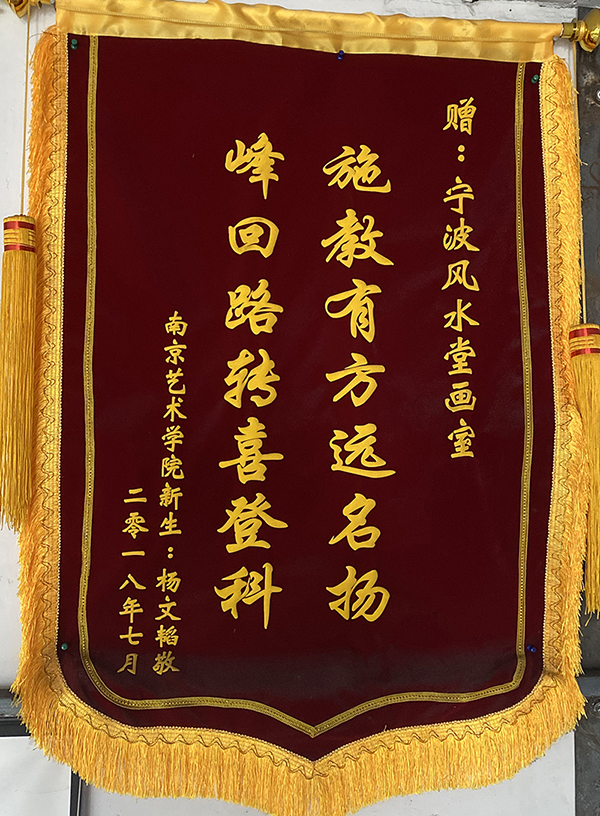 赠：宁波风水堂画室
施教有方远名扬
峰回路转喜登科
南京艺术学院新生：杨文韬敬
二零一八年七月